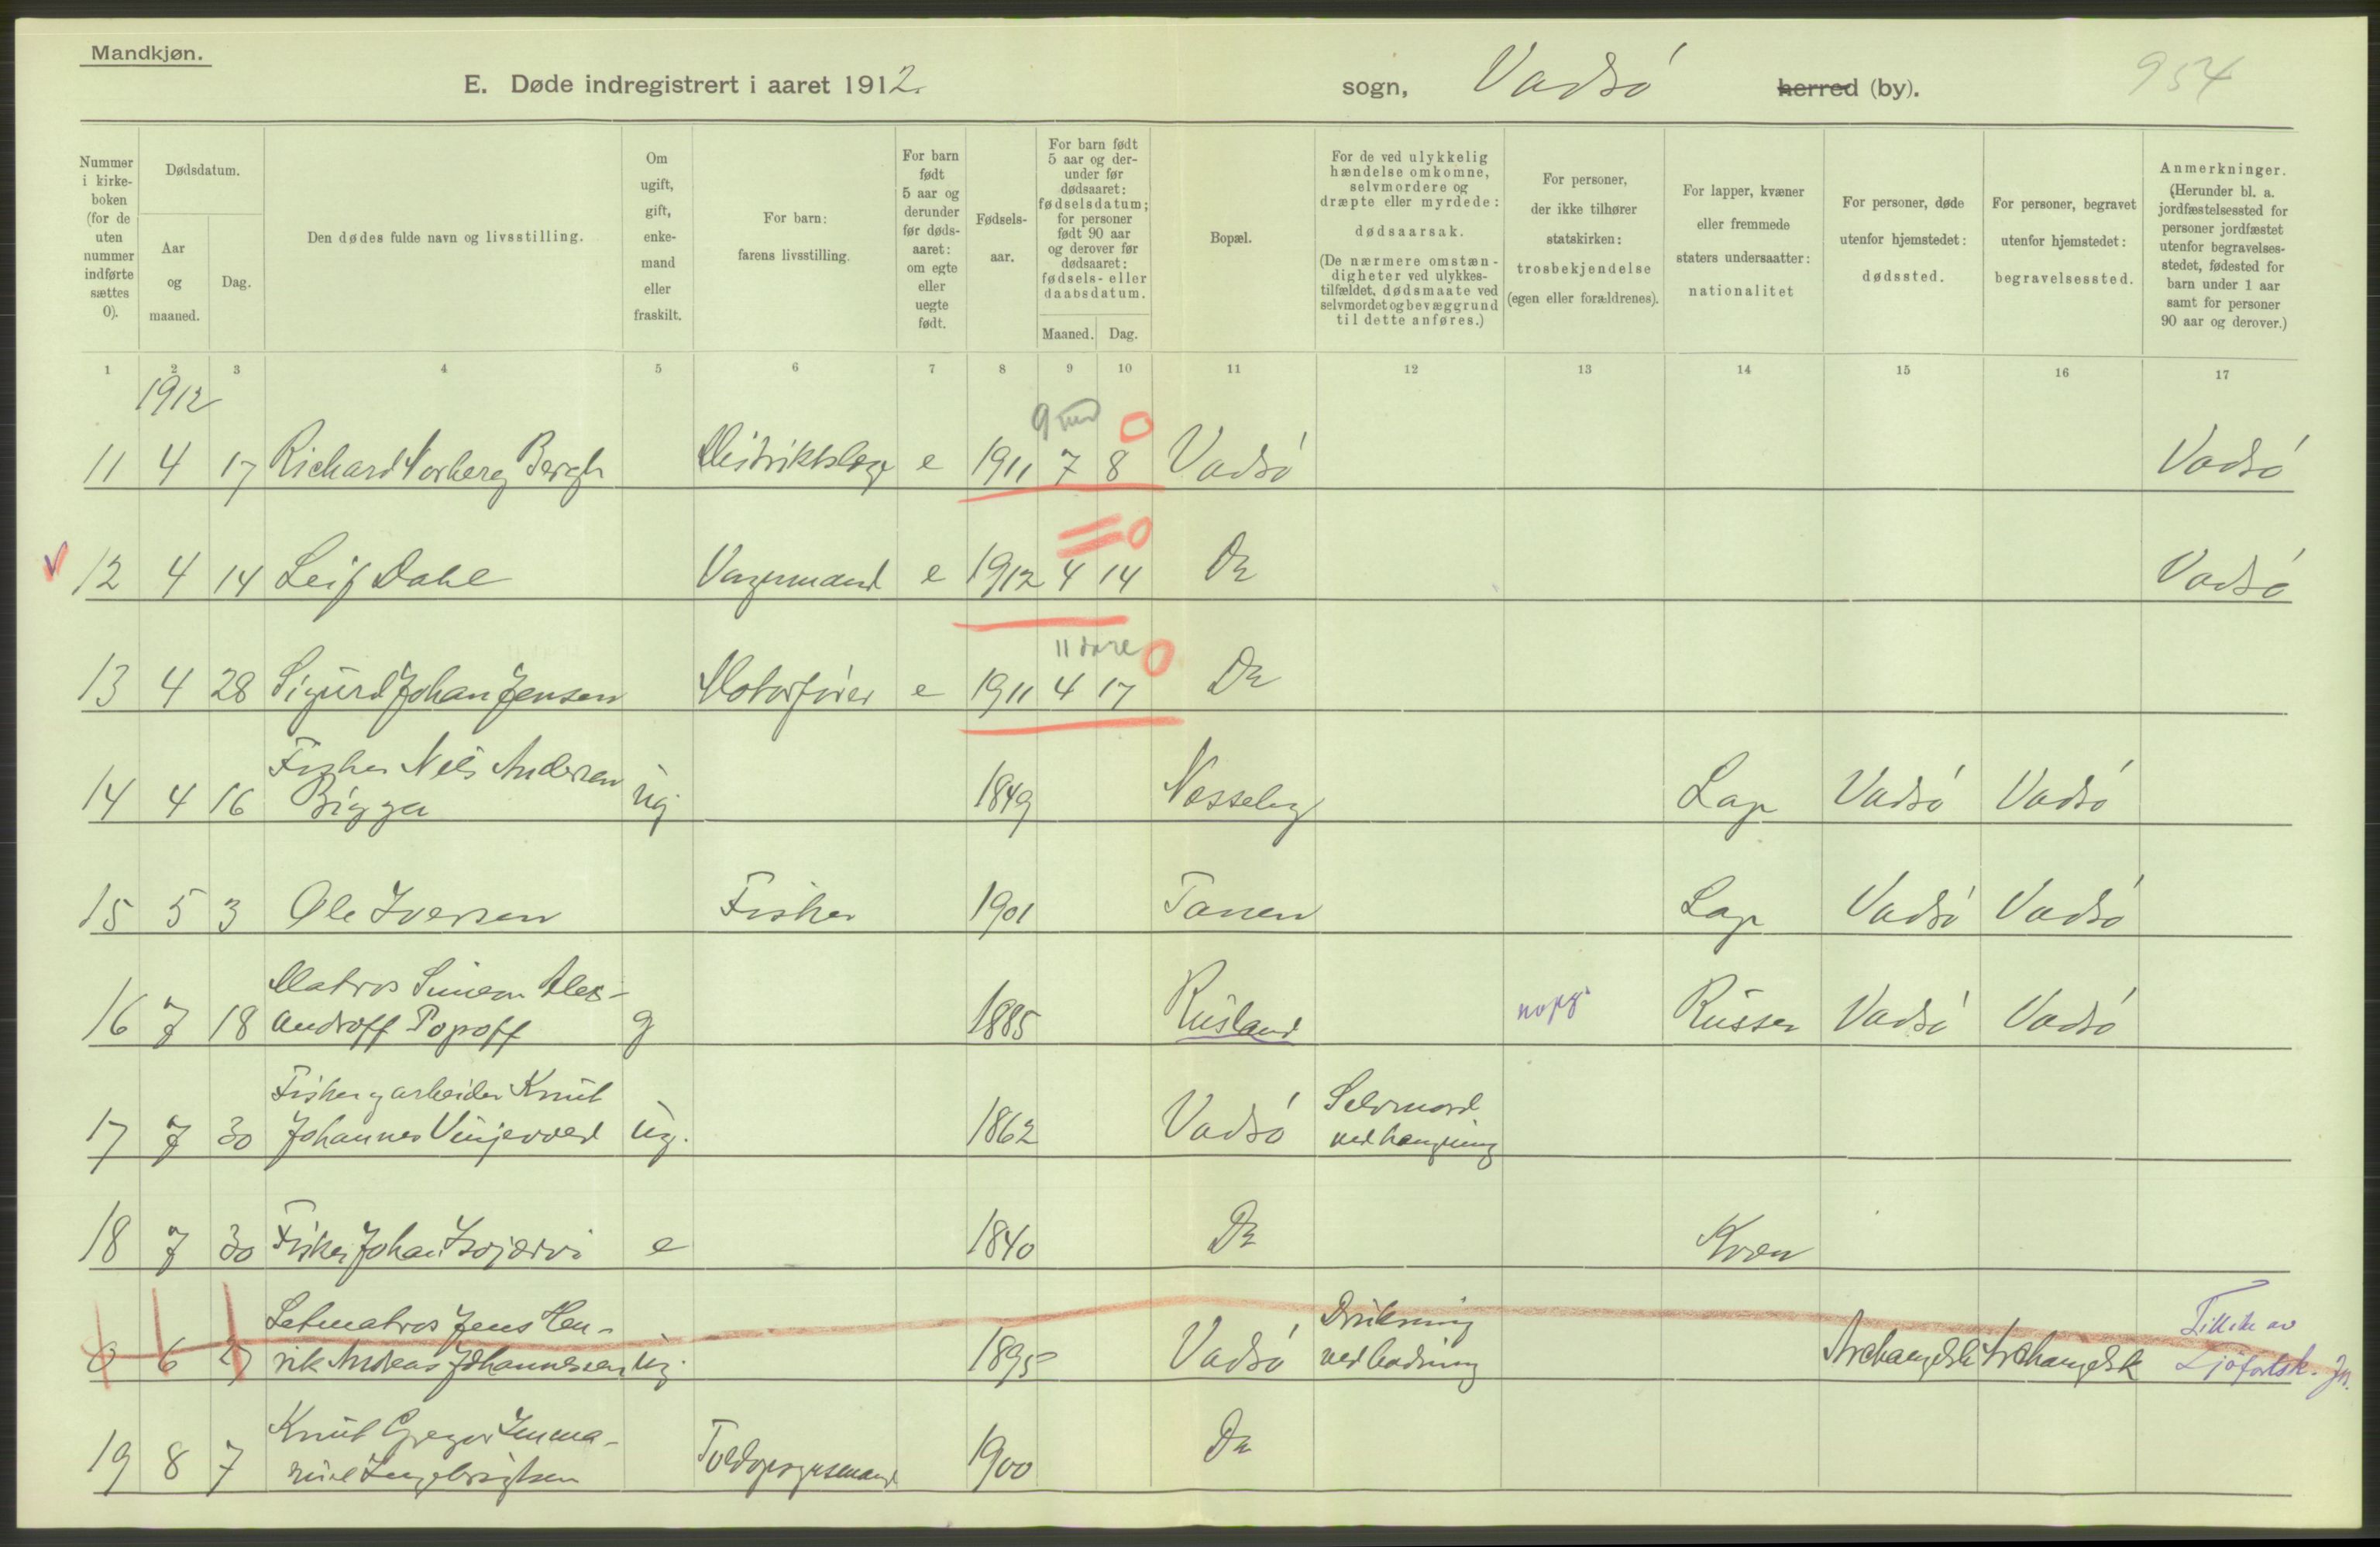 Mandkjøn.
E. Døde indregistrert i aaret 1912. sogn, Vadsø herred (by). 954
Nummer i kirke-boken (for de uten nummer indførte sættes 0).
Dødsdatum.
Aar og maaned.
Dag.
Den dødes fulde navn og livsstilling.
Om ugift, gift, enke-mand eller fraskilt.
For barn: farens livsstilling.
For barn født 5 aar og derunder før døds-aaret: om egte eller uegte født.
Fødsels-aar.
For barn født 5 aar og der-under før dødsaaret: fødselsdatum; for personer født 90 aar og derover før dødsaaret: fødsels- eller daabsdatum.
Maaned. Dag.
Bopæl.
For de ved ulykkelig hændelse omkomne, selvmordere og dræpte eller myrdede: dødsaarsak. (De nærmere omstæn-digheter ved ulykkes-tilfældet, dødsmaate ved selvmordet og bevæggrund til dette anføres.)
For personer, der ikke tilhører statskirken: trosbekjendelse (egen eller forældrenes).
For lapper, kvæner eller fremmede staters undersaatter: nationalitet
For personer, døde utenfor hjemstedet: dødssted.
For personer, begravet utenfor hjemstedet: begravelsessted.
Anmerkninger. (Herunder bl. a. jordfæstelsessted for personer jordfæstet utenfor begravelses-stedet, fødested for barn under 1 aar samt for personer 90 aar og derover.)
1 2 3 4 5 6 7 8 9 10 11 12 13 14 15 16 17
1912
9 md 0
11 4 17 Richard Norberg Bergh Distriktslæge e 1911 7 8 Vadsø Vadsø
0
12 4 14 Leif Dahl e 1912 4 14 Do Vadsø
11 0
13 4 28 Sigurd Johan Jensen Motorfører e 1911 4 17 Do
Fisker Nils Andersen
14 4 16 Bigga ug 1849 Nesseby Lap Vadsø Vadsø
15 5 3 Ole Iversen Fisker 1901 Tanen Lap Vadsø Vadsø
Matros Simeon Alex-
16 7 18 androff Popoff g 1885 Rusland Russer Vadsø Vadsø
Fisker og arbeider Knut Selvmord
17 7 30 Johannes Vinjevoed ug. 1862 Vadsø ved hængning
18 7 30 Fisker Johan e 1840 Do Kvæn
Letmatros Jens Hen- Drukning
0 6 27 rik Andreas Johannessen ug. 1895 Vadsø ved badning Archangelsk Archangelsk
Knut Gregor Imma-
19 8 7 nuel Ingebrigtsen Toldopsynsmand 1900 Do